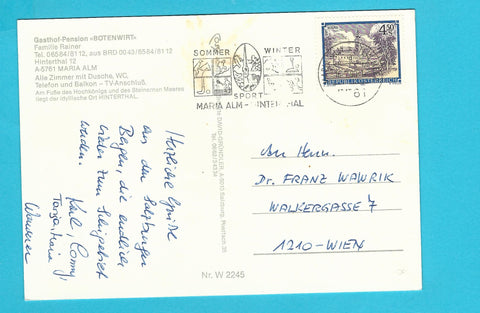 Gasthof-Pension «BOTENWIRT»
Familie Rainer
Tel. 06584/8112, aus BRD 0043/6584/8112
Hinterthal 12
A-5761 MARIA ALM
Alle Zimmer mit Dusche, WC,
Telefon und Balkon – TV-Anschluß.
Am Fuße des Hochkönigs und des Steinernen Meeres
liegt der idyllische Ort HINTERTHAL.
SOMMER WINTER
SPORT
MARIA ALM - HINTERTHAL
4.50
REPUBLIK ÖSTERREICH
Herzliche Grüße
aus den Salzburger
Bergen, die endlich
wieder zum Schigebiet
werden.
Karl,
Tanja, Maria
An Herrn
Dr. FRANZ WAWRIK
WALKERGASSE 7
1210-WIEN
Nr. W 2245